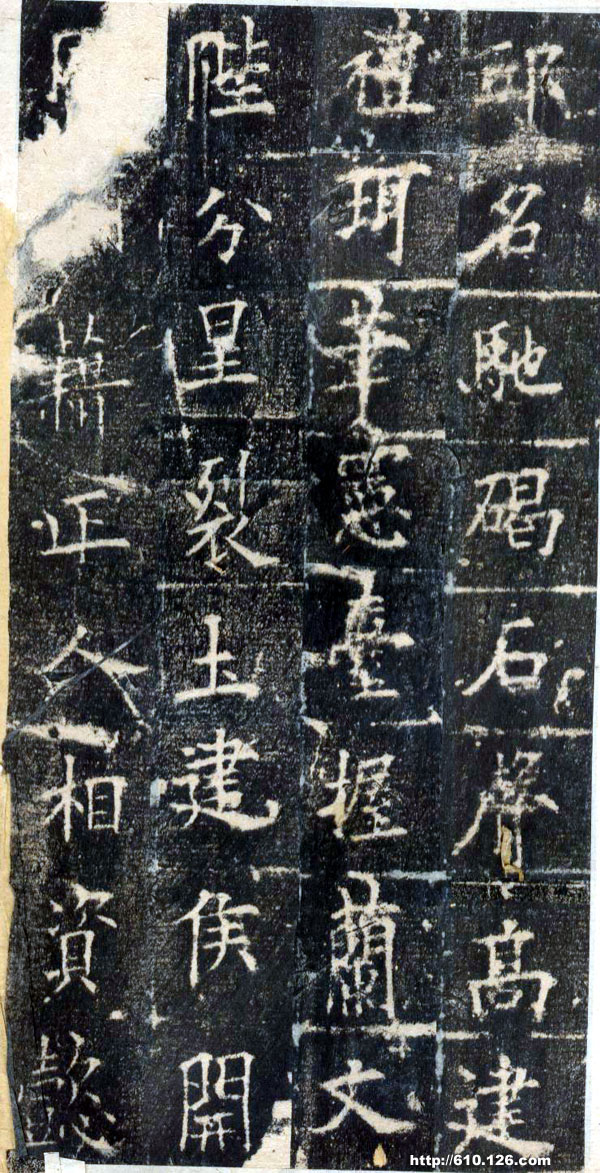 邸名馳碣石聲高建
禮珥筆憲臺握蘭文
陛分星裂土建侯開
籍正人相資懿
http://610.126.com